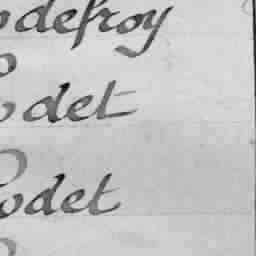 odefroy
odet
odet